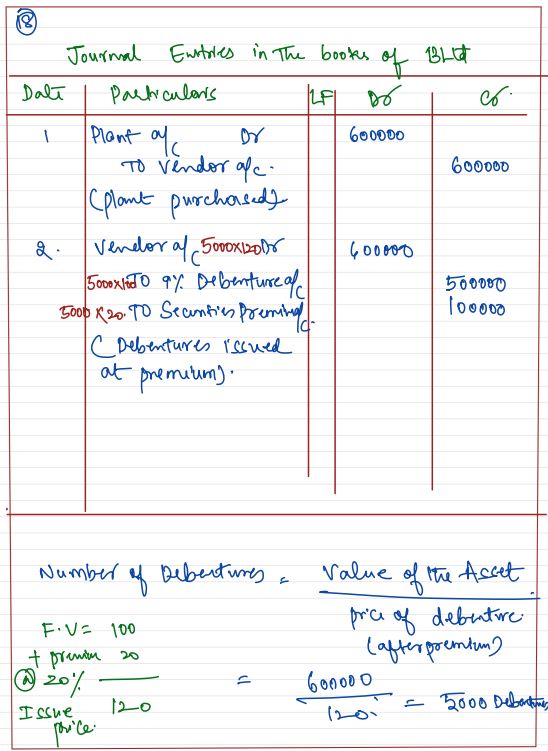 18
Journal Entries in The books of BLtd
Date Particulars LF Dr Cr.
1 Plant a/c Dr 600000
TO Vendor a/c. 600000
(plant purchased)
2. Vendor a/c 5000x120 Dr 600000
5000x100 TO 9% Debenture a/c 500000
5000 x 20. TO Securities Premium a/c. 100000
(Debentures issued
at premium).
Number of Debentures = Value of the Asset
price of debenture
(after premium)
F.V = 100
+ premium 20
@ 20%
Issue price. 120
= 600000 / 120 = 5000 Debentures